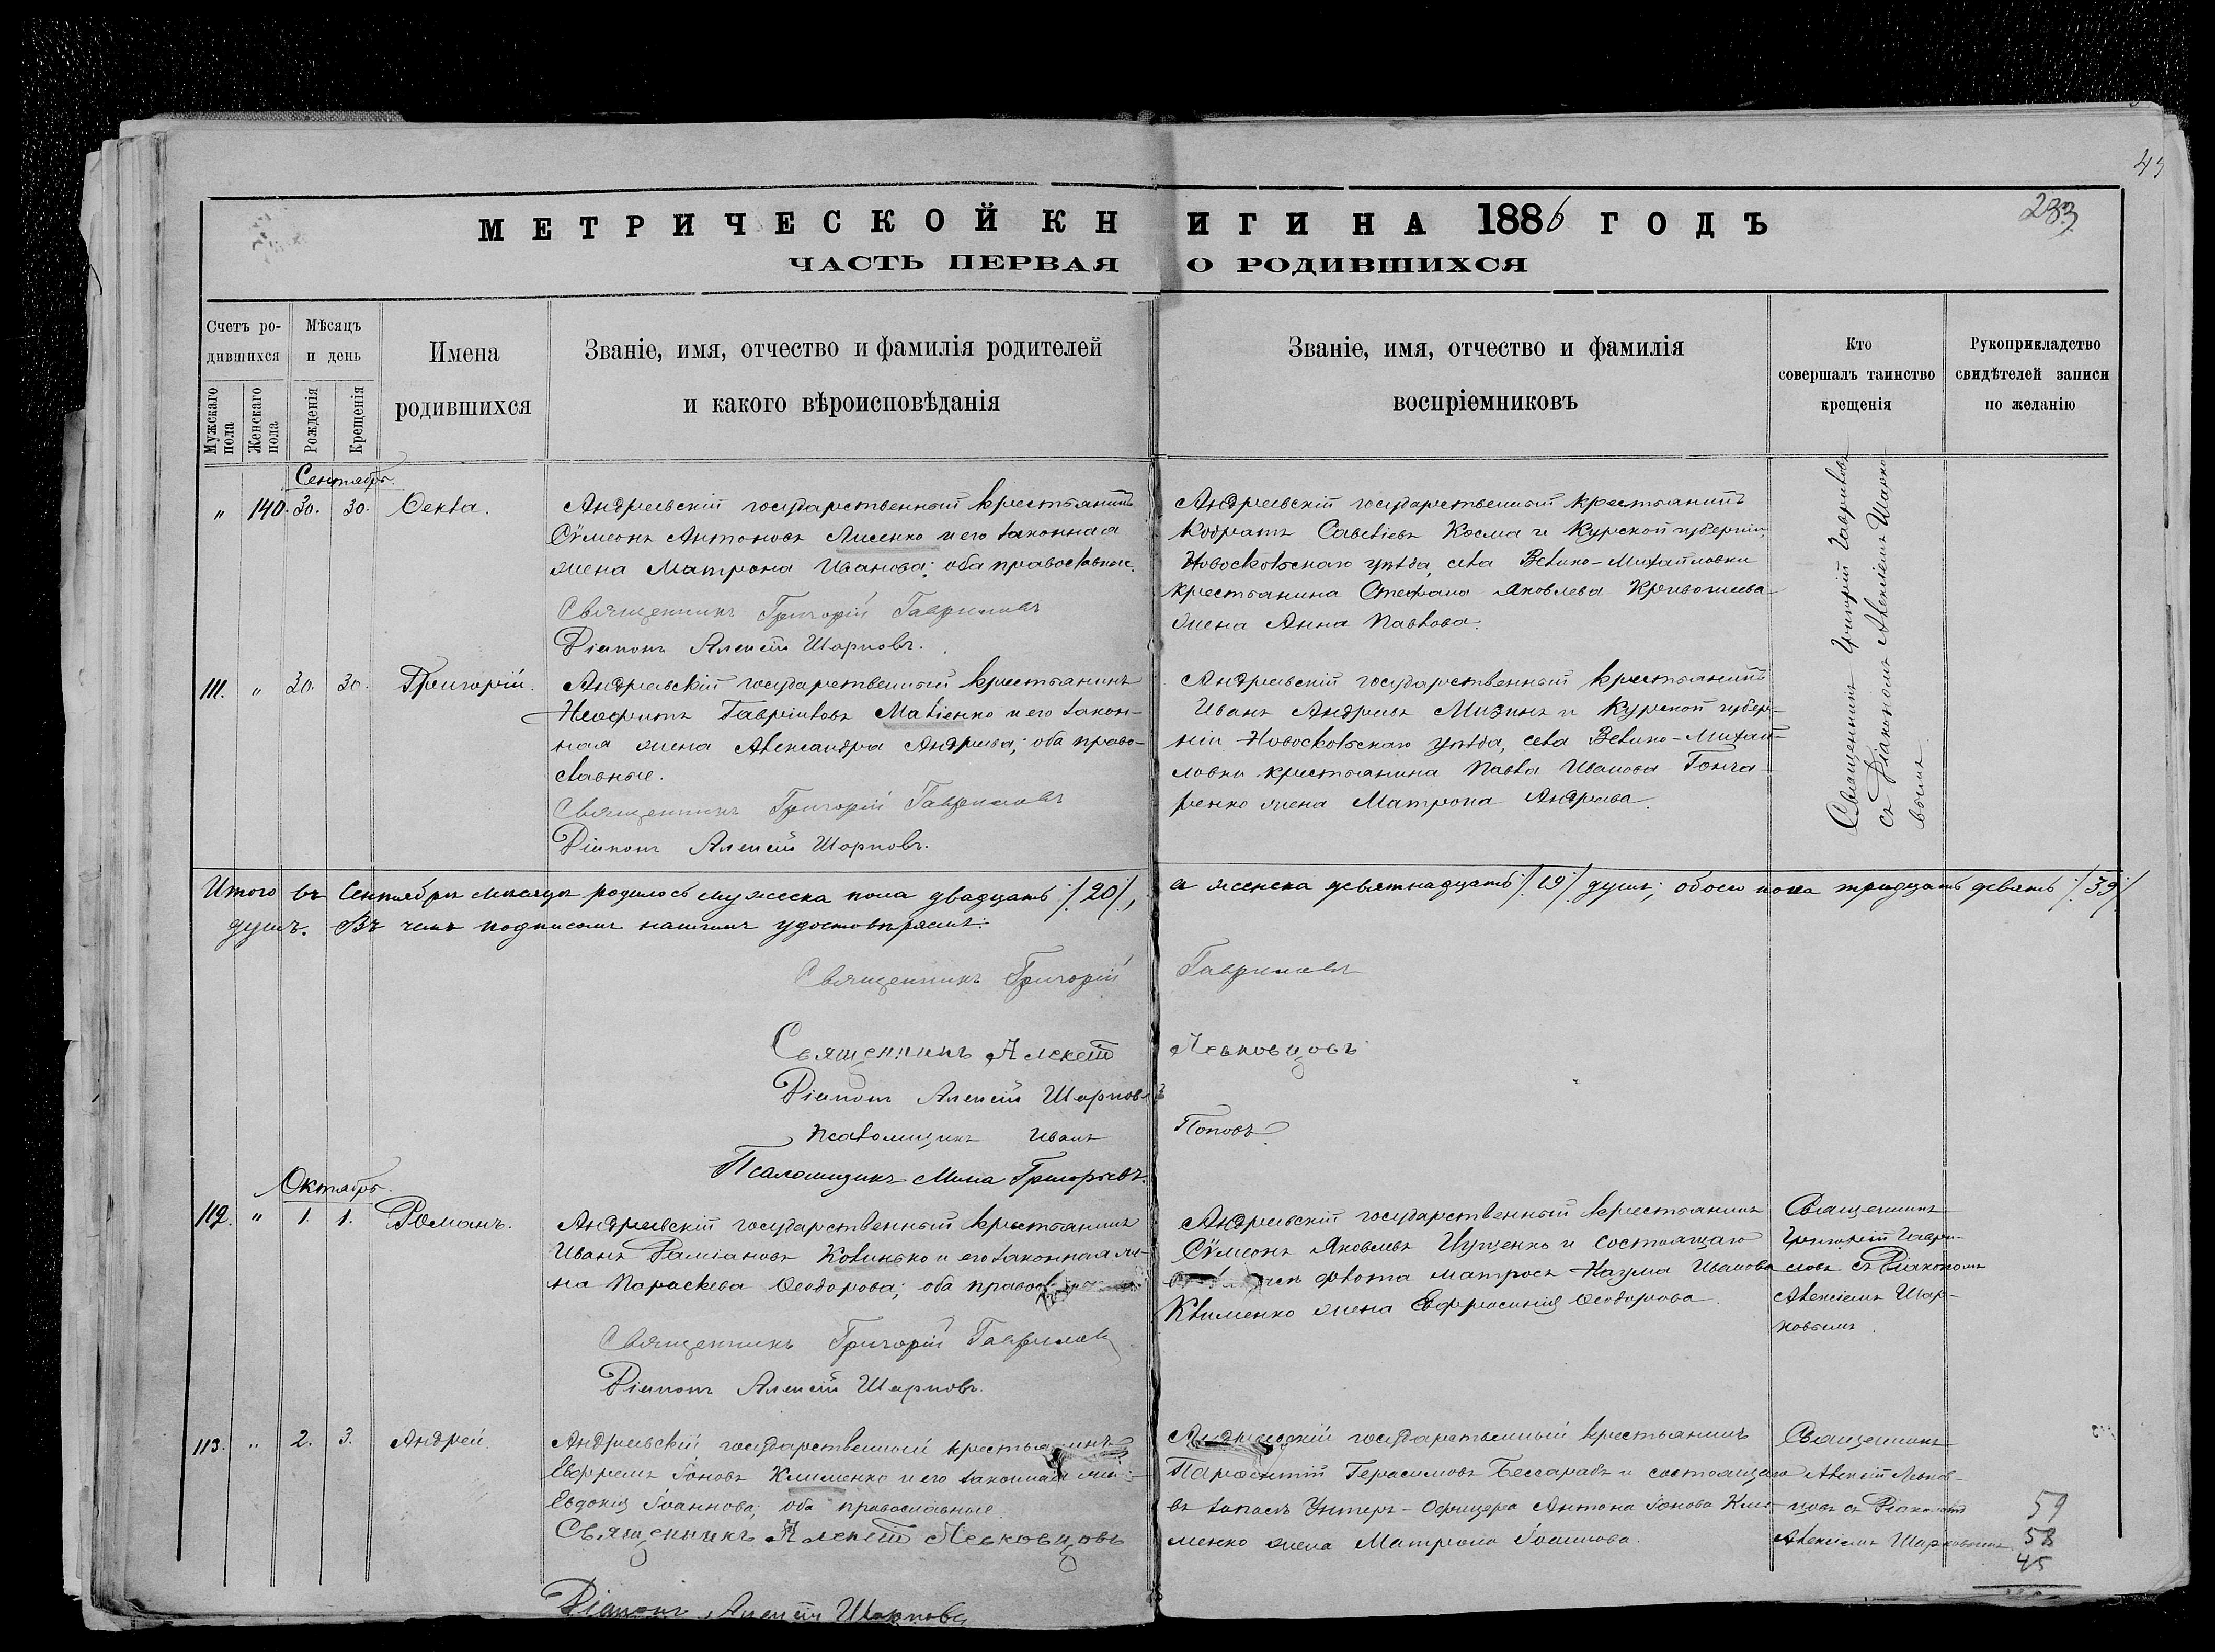 283
МЕТРИЧЕСКОЙ КНИГИ НА 1886 ГОДЪ
ЧАСТЬ ПЕРВАЯ О РОДИВШИХСЯ
Счетъ родившихся
Мужскаго пола
Женскаго пола
Мѣсяцъ и день
Рожденія
Крещенія
Имена
родившихся
Званіе, имя, отчество и фамилія родителей
и какого вѣроисповѣданія
Званіе, имя, отчество и фамилія
воспріемниковъ
Кто
совершалъ таинство
крещенія
Рукоприкладство
свидѣтелей записи
по желанію
Сентябрь.
" 140. 30. 30. Ѳекла.
Андреевскій государственный крестьянинъ
Сѵмеонъ Антоновъ Лисенко и его законная
жена Матрона Иванова; оба православные.
Священникъ Григорій Гавриловъ
Діаконъ Алексій Шарковъ.
Андреевскій государственный крестьянинъ
Кодратъ Савеліевъ Косма и Курской губерніи,
Новооскольскаго уѣзда, села Велико-Михайловки
крестьянина Стефана Яковлева
жена Анна Павлова.
Священникъ Григорій Гавриловъ
съ Діакономъ Алексіемъ Шарко-
вымъ.
111. " 30. 30. Григорій.
Андреевскій государственный крестьянинъ
Неофитъ Гавріиловъ Маліенко и его закон-
ная жена Александра Андреева; оба право-
славные.
Священникъ Григорій Гавриловъ
Діаконъ Алексій Шарковъ.
Андреевскій государственный крестьянинъ
Иванъ Андреевъ Мизинъ и Курской губер-
ніи Новооскольскаго уѣзда, села Велико-Михай-
ловки крестьянина Павла Иванова Гонча-
ренко жена Матрона Андреева.
Итого въ Сентябрѣ мѣсяцѣ родилось мужеска пола двадцать /20/, а женска девятнадцать /19/ душъ; обоего пола тридцать девять /39/
душъ. Въ чемъ подписомъ нашимъ удостовѣряемъ:
Священникъ Григорій Гавриловъ
Священникъ Алексій Левковцовъ
Діаконъ Алексій Шарковъ
Псаломщикъ Иванъ Поповъ
Псаломщикъ Мина Григорьевъ.
Октябрь.
112. " 1. 1. Романъ.
Андреевскій государственный крестьянинъ
Иванъ Даміановъ Ковинько и его законная же-
на Параскева Ѳеодорова; оба
Священникъ Григорій Гавриловъ
Діаконъ Алексій Шарковъ.
Андреевскій государственный крестьянинъ
Сѵмеонъ Яковлевъ и состоящаго
флота матроса Наума Иванова
Клименко жена Евфросинія Ѳеодорова.
Священникъ
Григорій Гаври-
ловъ съ Діакономъ
Алексіемъ Шар-
ковымъ.
113. " 2. 3. Андрей.
Андреевскій государственный крестьянинъ
Ефремъ Іоновъ Клименко и его законная
Евдокія Іоаннова; оба православные.
Священникъ Алексій Левковцовъ
Діаконъ Алексій Шарковъ
Андреевскій государственный крестьянинъ
Герасимовъ Бессарабъ и состоящаго
въ запасѣ Унтеръ-Офицера Антона Іонова Кли-
менко жена Матрона Іоаннова.
Священникъ
Алексій Левков-
цовъ съ Діакономъ
Алексіемъ Шарковымъ
59
58
45